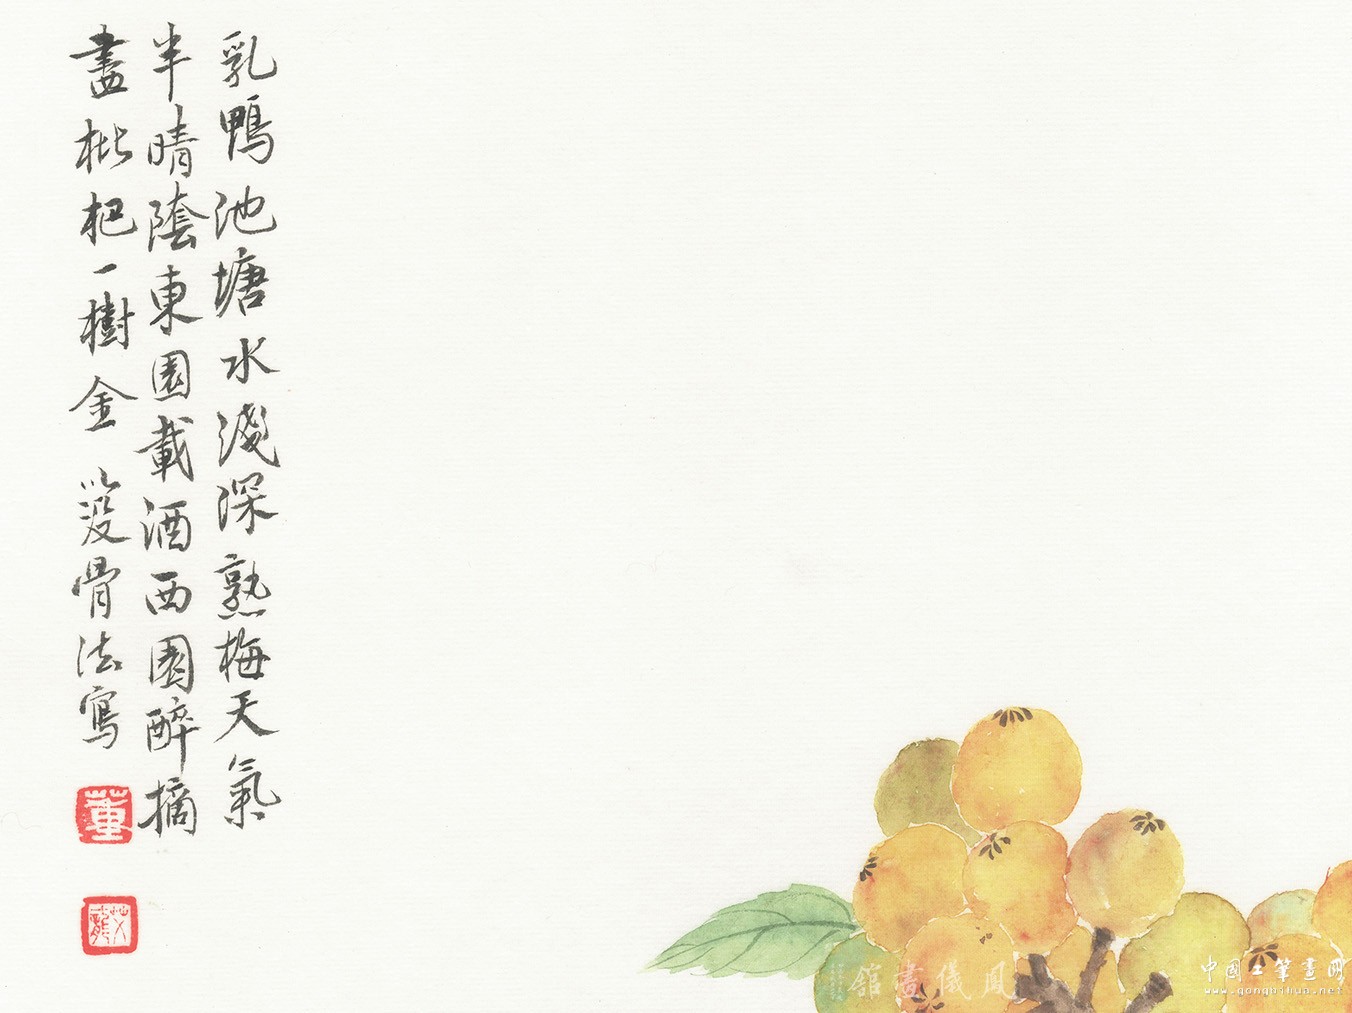 乳鴨池塘水淺深熟梅天氣
半晴陰東園載酒西園醉摘
盡枇杷一樹金 以沒骨法寫
董
艾龍
鳳儀畫館
中國工筆畫網
www.gongbihua.net